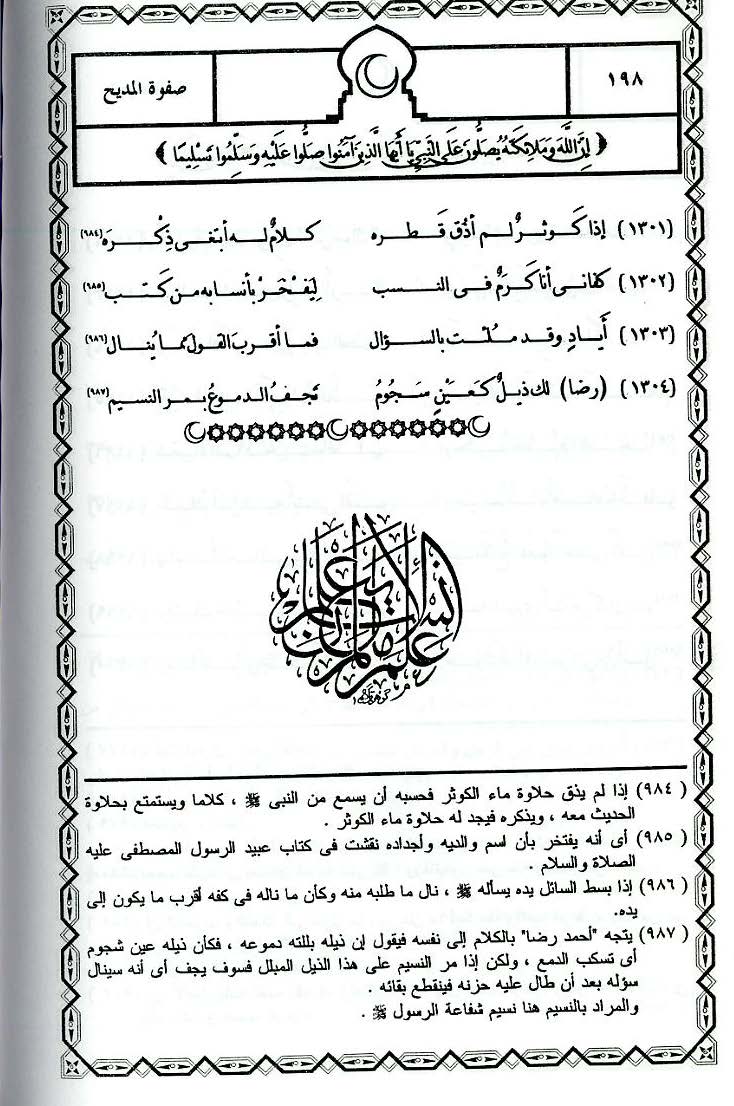 ١٩٨
صفوة المديح
﴿ إِنَّ اللَّهَ وَمَلَائِكَتَهُ يُصَلُّونَ عَلَى النَّبِيِّ يَا أَيُّهَا الَّذِينَ آمَنُوا صَلُّوا عَلَيْهِ وَسَلِّمُوا تَسْلِيمًا ﴾
(١٣٠١) إذا كوثرٌ لم أذُق قَطره كلامٌ له أبتغى ذِكْرَه (٩٨٤)
(١٣٠٢) كفانى أنا كَرَمٌ فى النسب لِيَفْخَرْ بأنسابه من كَتَب (٩٨٥)
(١٣٠٣) أَيادٍ وقد مُلئت بالسؤال فما أقربَ القولَ مما يُنال (٩٨٦)
(١٣٠٤) (رضا) لك ذيلٌ كعَيْنٍ سَجُومُ تجفُ الدموعُ بمر النسيم (٩٨٧)
علم الإنسان ما لم يعلم
(٩٨٤) إذا لم يذق حلاوة ماء الكوثر فحسبه أن يسمع من النبى ﷺ ، كلاما ويستمتع بحلاوة
الحديث معه ، ويذكره فيجد له حلاوة ماء الكوثر .
(٩٨٥) أى أنه يفتخر بأن اسم والديه وأجداده نقشت فى كتاب عبيد الرسول المصطفى عليه
الصلاة والسلام .
(٩٨٦) إذا بسط السائل يده يسأله ﷺ ، نال ما طلبه منه وكأن ما ناله فى كفه أقرب ما يكون إلى
يده.
(٩٨٧) يتجه "أحمد رضا" بالكلام إلى نفسه فيقول إن ذيله بللته دموعه ، فكأن ذيله عين شجوم
أى تسكب الدمع ، ولكن إذا مر النسيم على هذا الذيل المبلل فسوف يجف أى أنه سينال
سؤله بعد أن طال عليه حزنه فينقطع بقائه .
والمراد بالنسيم هنا نسيم شفاعة الرسول ﷺ .